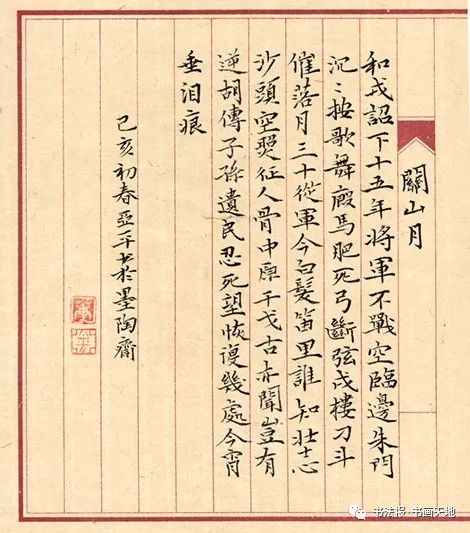 關山月
和戎詔下十五年將軍不戰空臨邊朱門
沉〻按歌舞廄馬肥死弓斷弦戍樓刁斗
催落月三十從軍今白髮笛里誰知壯志
沙頭空照征人骨中原干戈古亦聞豈有
逆胡傳子孫遺民忍死望恢復幾處今宵
垂泪痕
己亥初春亞平書於墨陶齋
书法报·书画天地